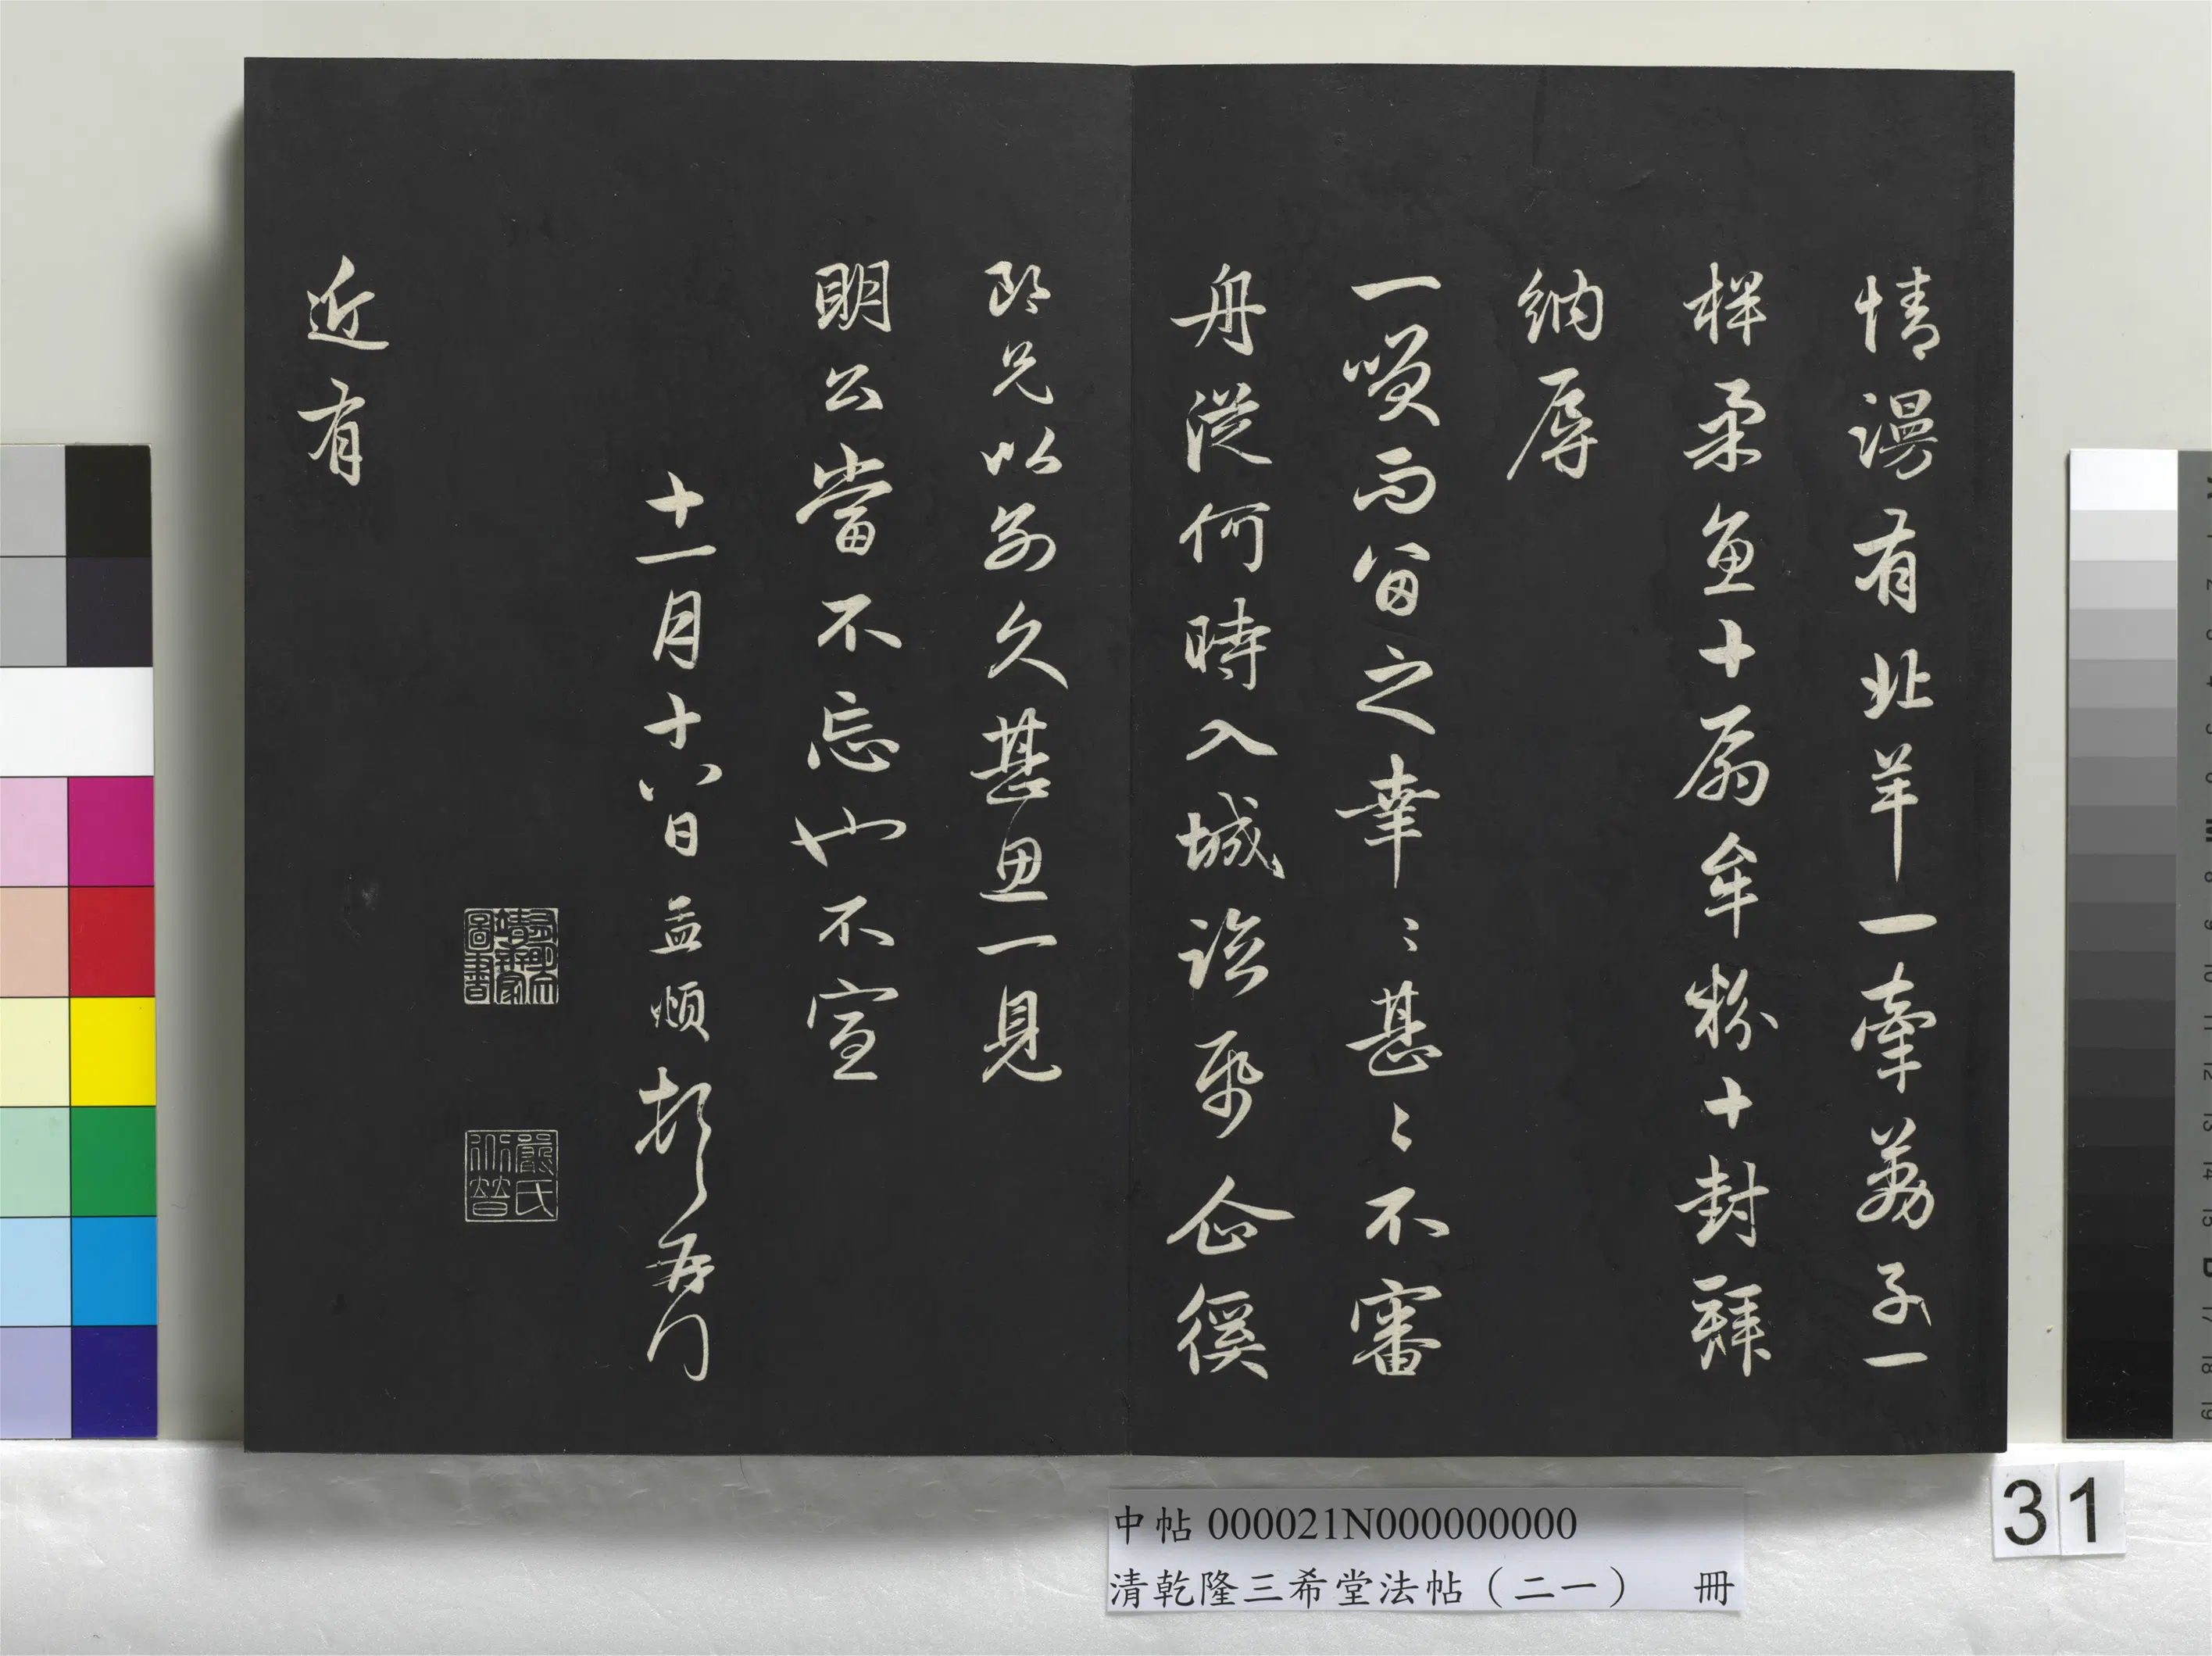 情漫有北羊一牽荔子一
样柔魚十扇牟粉十封拜
納辱
一㗛而留之幸〻甚〻不審
舟從何時入城詣承企徯
郎兄以別久甚思一見
明公當不忘也不宣
十一月十八日孟頫頓首
近有
中帖 000021N000000000
清乾隆三希堂法帖（二一） 冊
31